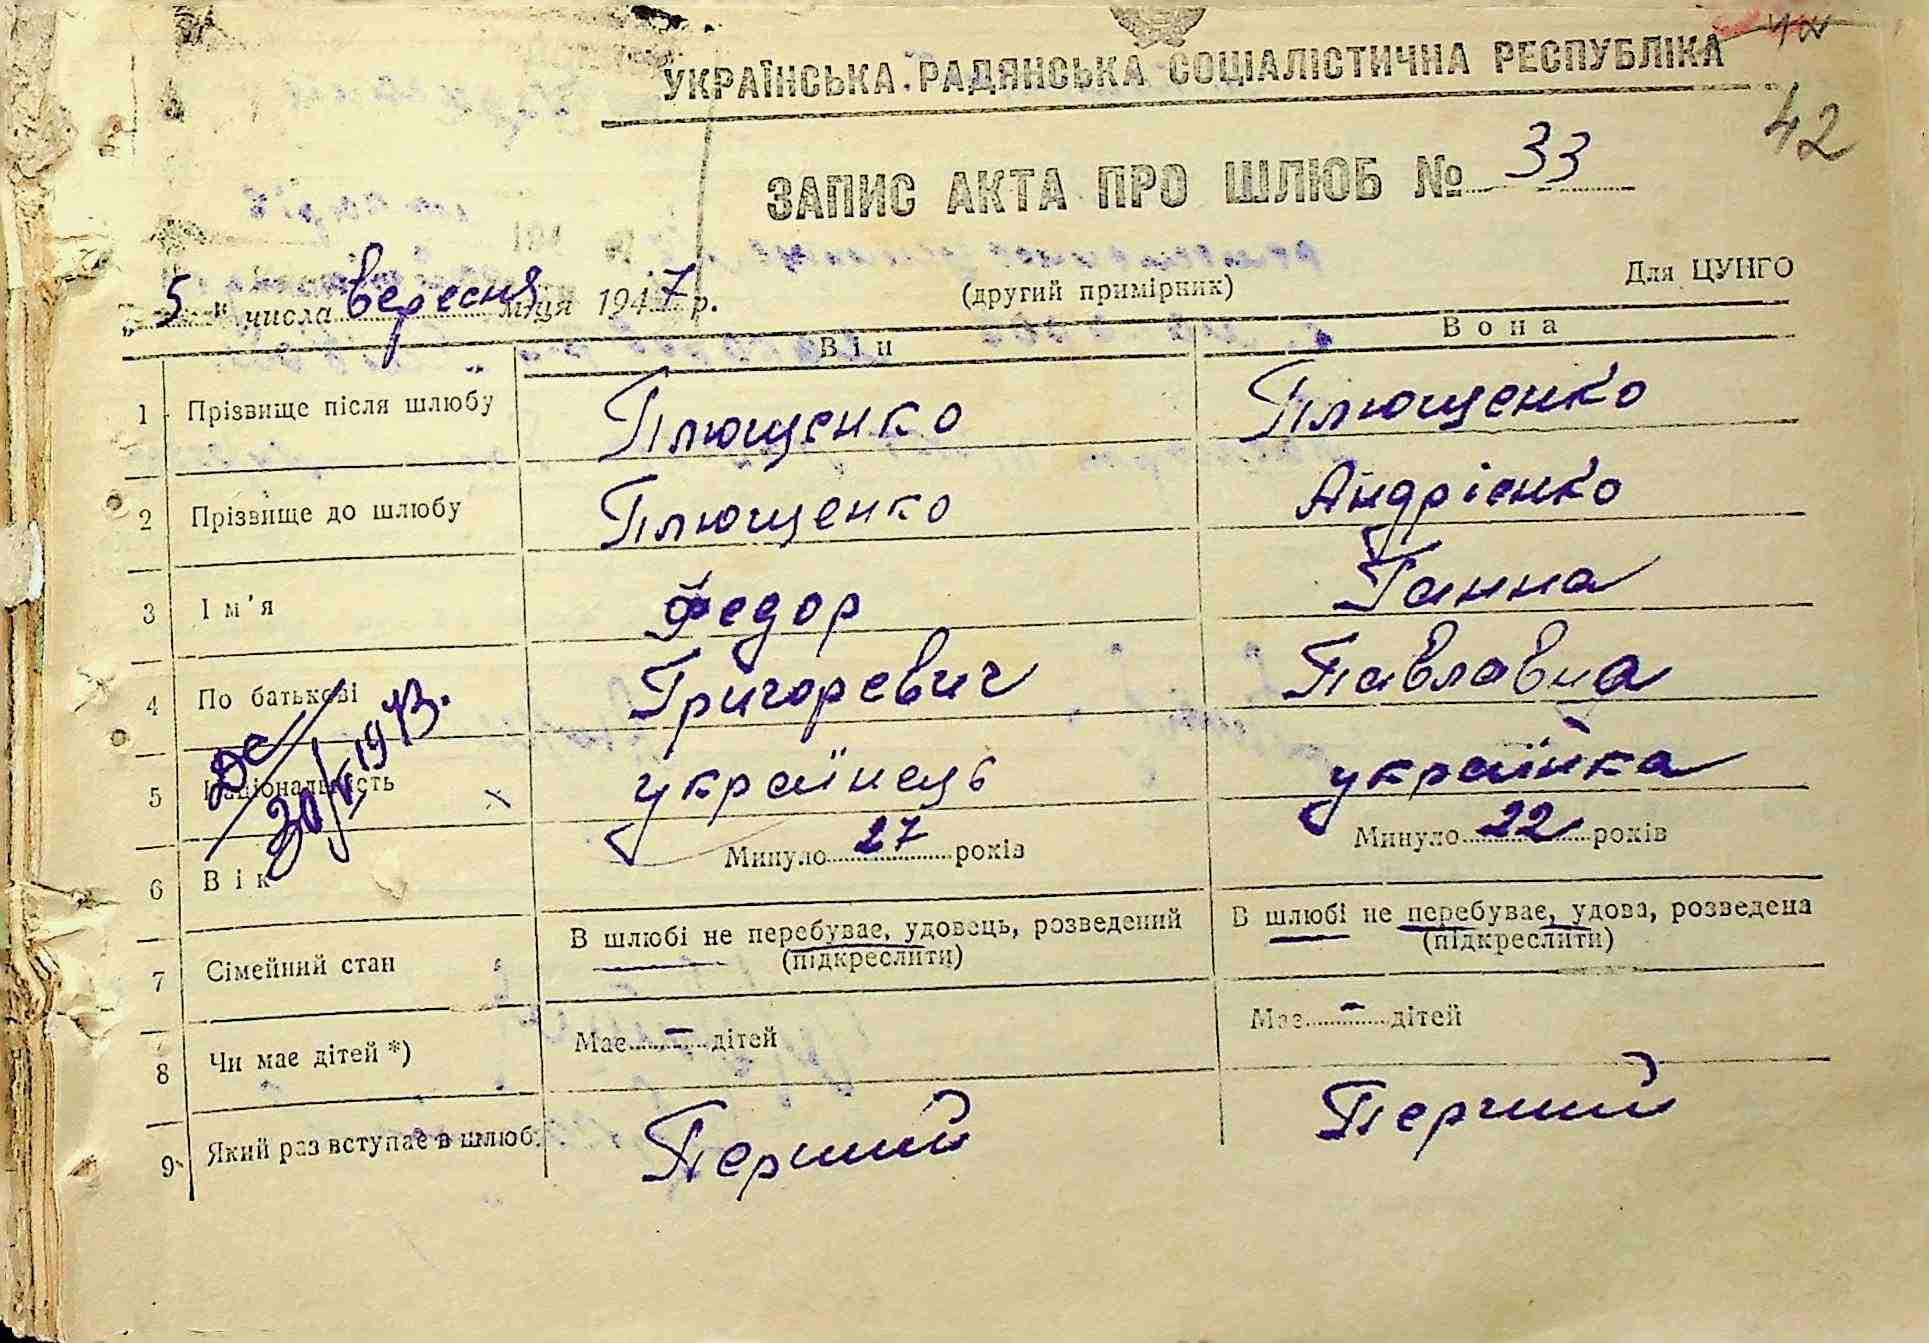 УКРАЇНСЬКА РАДЯНСЬКА СОЦІАЛІСТИЧНА РЕСПУБЛІКА
42
ЗАПИС АКТА ПРО ШЛЮБ № 33
„5" числа вересня м-ця 1947 р.
(другий примірник)
Для ЦУНГО
Він Вона
1 Прізвище після шлюбу Плющенко Плющенко
2 Прізвище до шлюбу Плющенко Андрієнко
3 Ім'я Федор Ганна
4 По батькові Григоревич Павлавна
5 Національність українець українка
6 Вік Минуло 27 років Минуло 22 років
7 Сімейний стан В шлюбі не перебуває, удовець, розведений В шлюбі не перебуває, удова, розведена
(підкреслити) (підкреслити)
8 Чи має дітей *) Має - дітей Має - дітей
9 Який раз вступає в шлюб. Перший Перший